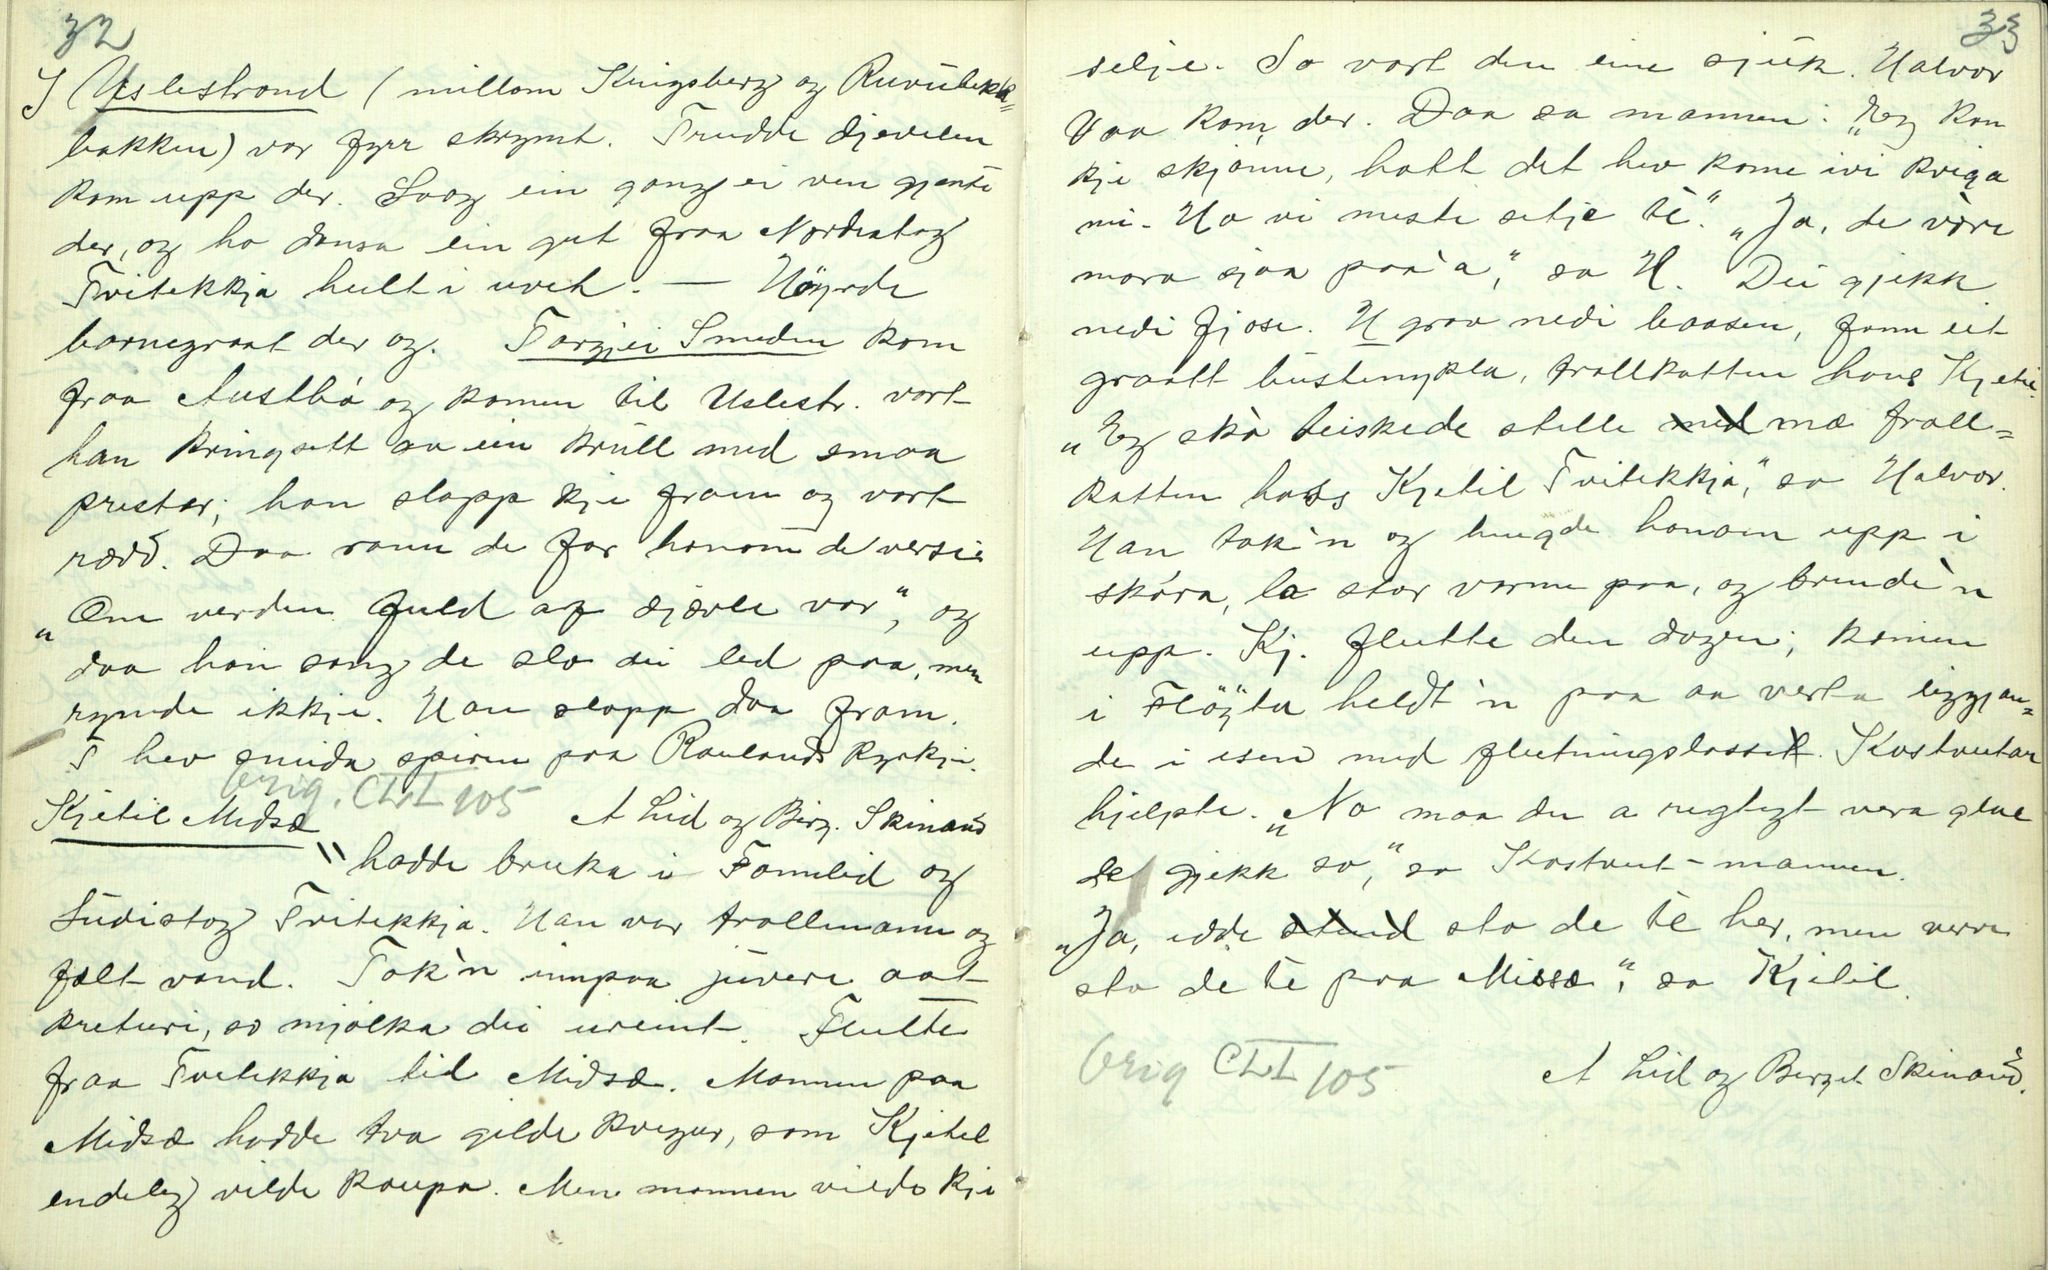 32
I Uslestrond (millom Kingsberg og Ruvülekk=
bakken) var fyrr skrymt. Trudde djevelen
kom upp der. Saag ein gong ei ven gjente
der, og ho dansa ein gut fraa Nordistog
Tvitekkja heilt i uvet. — Høyrde
barnegraat der og. Torgjei Smeden kom
fraa Austbò og komen til Uslestr. vart
han kringsett av ein krüll med smaa
prestar; han slapp kje fram og vart
rædd. Daa rann de for honom de verset
„Om verden fuld af djævle var“, og
daa han song de slo dei led paa, men
rymde ikkje. Han slapp daa fram.
T hev smida spiren paa Raulands kyrkje.
Orig. CLI 105 A Lid og Birg. Skinand
Kjetil Midsæ
hadde bruka i Fonnlid og
Südistog Tvitekkja. Han var trollmann og
fælt vond. Tok'n innpaa jüvere aat
kreturi, so mjølka dei ureint. Flutte
fraa Tvitekkja til Midsæ. Mannen paa
Midsæ hadde tva gilde kvigur, som Kjetil
endeleg vilde kaupa. Men mannen vilde kje
33
selje. So vart den eine sjuk. Halvor
Vaa kom der. Daa sa mannen: „Eg kan
kje skjønne, hott det hev kome ivi kviga
mi. Ho vi meste setje te“. „Ja, de vòre
mora sjaa paa'a“, sa H. Dei gjekk
nedi fjose. H grov nedi baasen, fann eit
graatt büstenykla, trollkatten hans Kjetil.
„Eg skò beiskede stelle med mæ troll=
katten hass Kjetil Tvitekkja“, sa Halvor.
Han tok'n og hengde honom upp i
skòra, la stor varme paa, og brende'n
upp. Kj. flutte den dagen; komen
i Fløyta heldt'n paa aa verta liggjan=
de i isen med flutningslasset. Kostveitar
hjelpte. „No maa du a regtigt vera glae
de gjekk so“, sa Kostveit-mannen.
„Ja, idde stend sto de te her, men verre
sto de te paa Missæ“, sa Kjetil.
Orig CLI 105 A Lid og Berget Skinand.